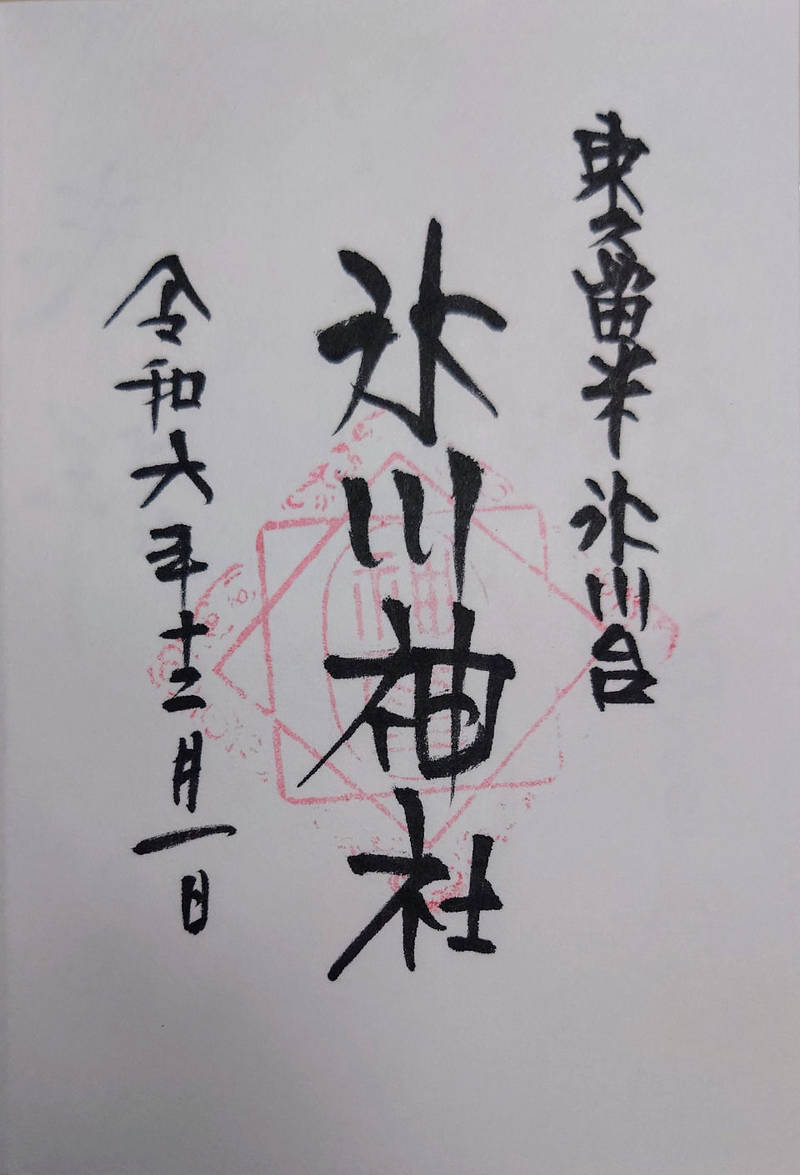 東久留米氷川台
氷川神社
令和六年十二月一日